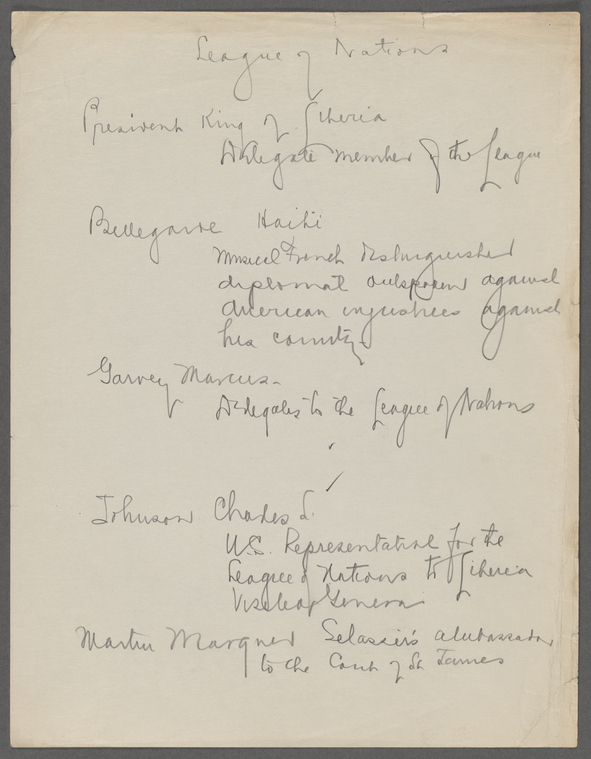 League of Nations
President King of Liberia
Delegate member of the League
Bellegarde Haiti
French distinguished
diplomat outspoken against
American injustices against
his country
Garvey Marcus -
Delegates to the League of Nations
Johnson Charles S.
U.S. Representative for the
League of Nations to Liberia
Geneva
Martin Selassie's ambassador
to the Court of St James